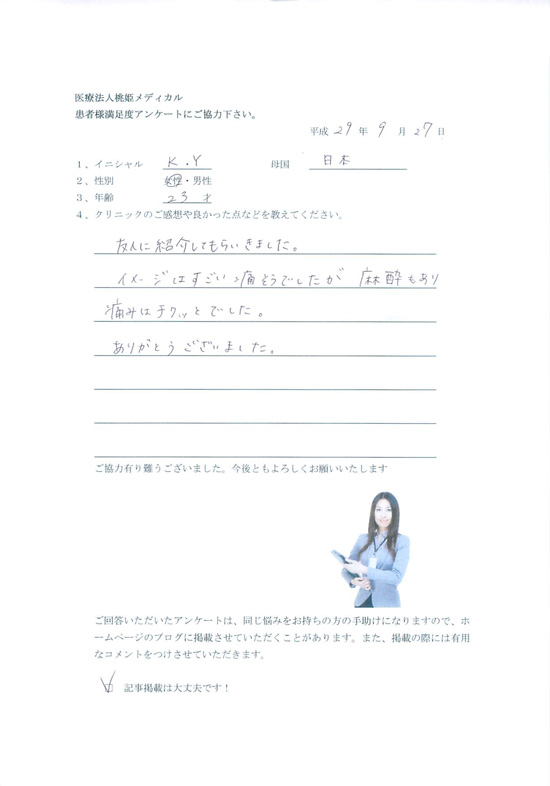 医療法人桃姫メディカル
患者様満足度アンケートにご協力下さい。
平成 29 年 9 月 27 日
1、イニシャル K.Y 母国 日本
2、性別 女性・男性
3、年齢 23 才
4、クリニックのご感想や良かった点などを教えてください。
友人に紹介してもらいきました。
イメージはすごいっ痛そうでしたが 麻酔もあり
痛みはチクッとでした。
ありがとうございました。
ご協力有り難うございました。今後ともよろしくお願いいたします
ご回答いただいたアンケートは、同じ悩みをお持ちの方の手助けになりますので、ホ
ームページのブログに掲載させていただくことがあります。また、掲載の際には有用
なコメントをつけさせていただきます。
記事掲載は大丈夫です！